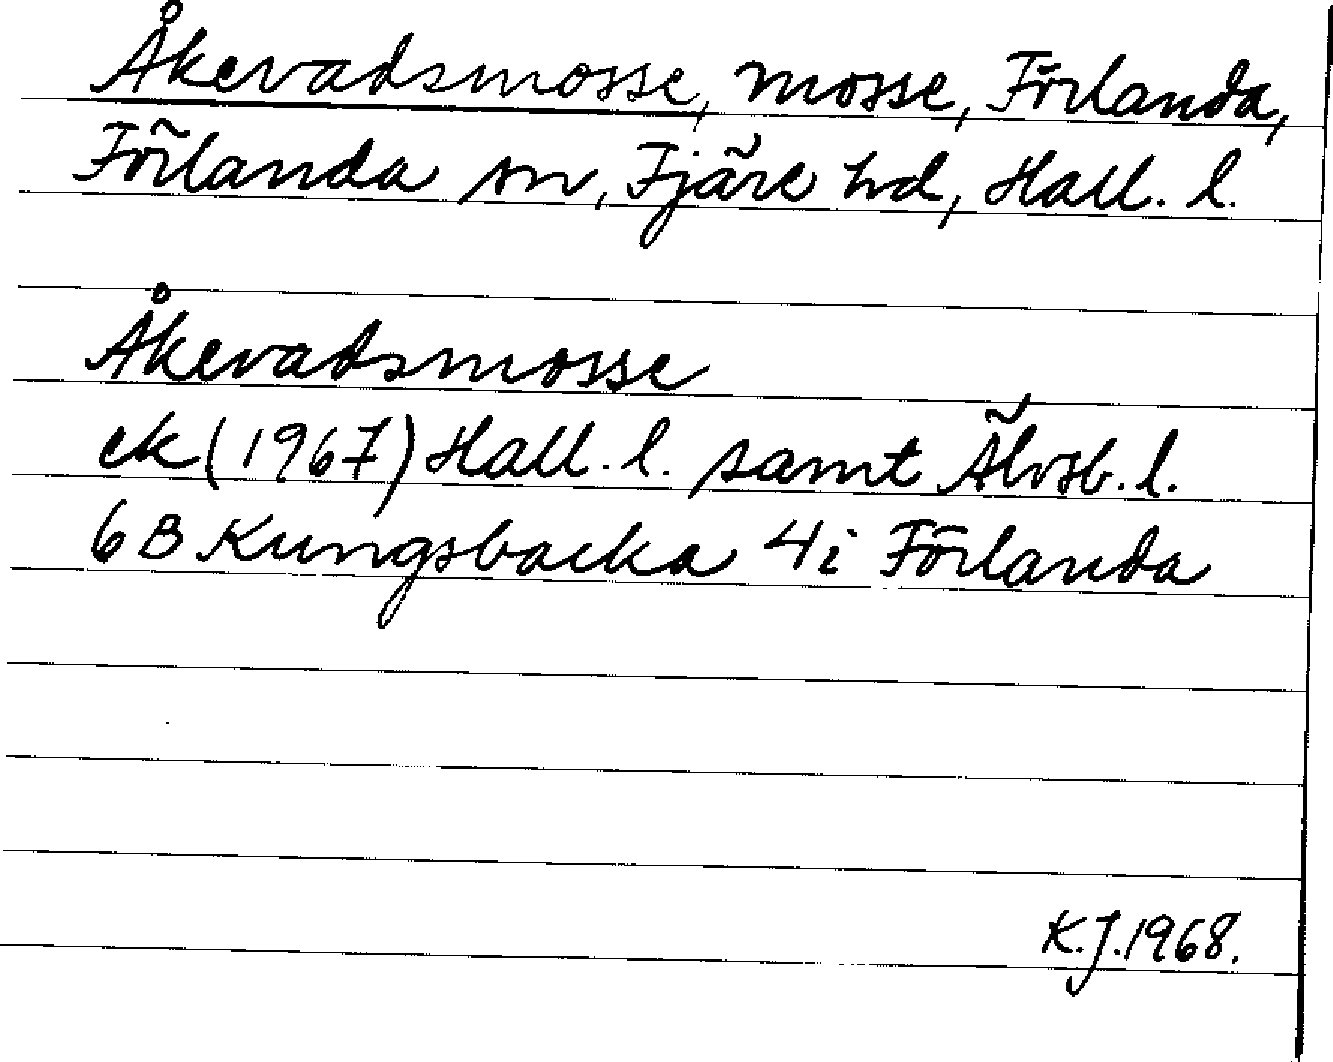 Åkevadsmosse, mosse, Förlanda,
Förlanda sn, Fjäre hd, Hall. l.
Åkevadsmosse
ek (1967) Hall. l. samt Älvsb. l.
6B Kungsbacka 4i Förlanda
K.J. 1968.